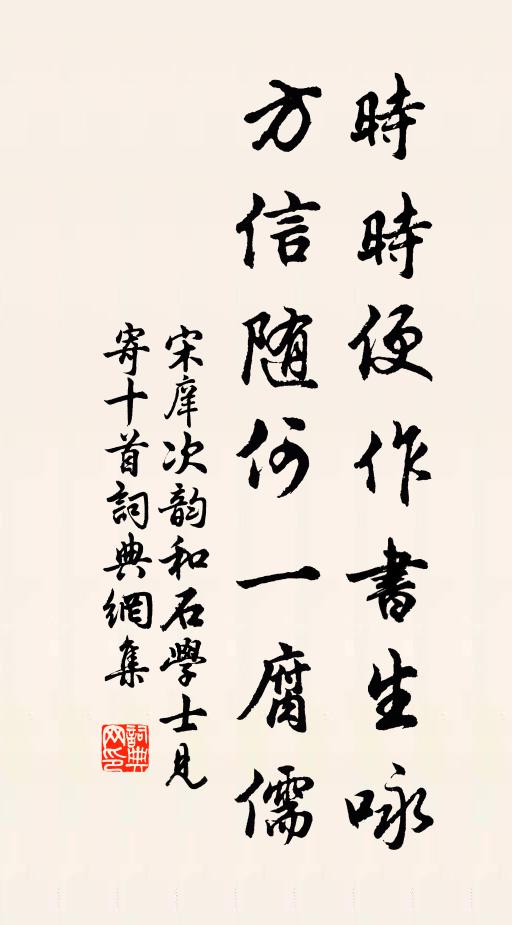 時時便作書生咏
方信随何一腐儒
宋庠次韵和石學士見
寄十首詞典網集
詞典
网印